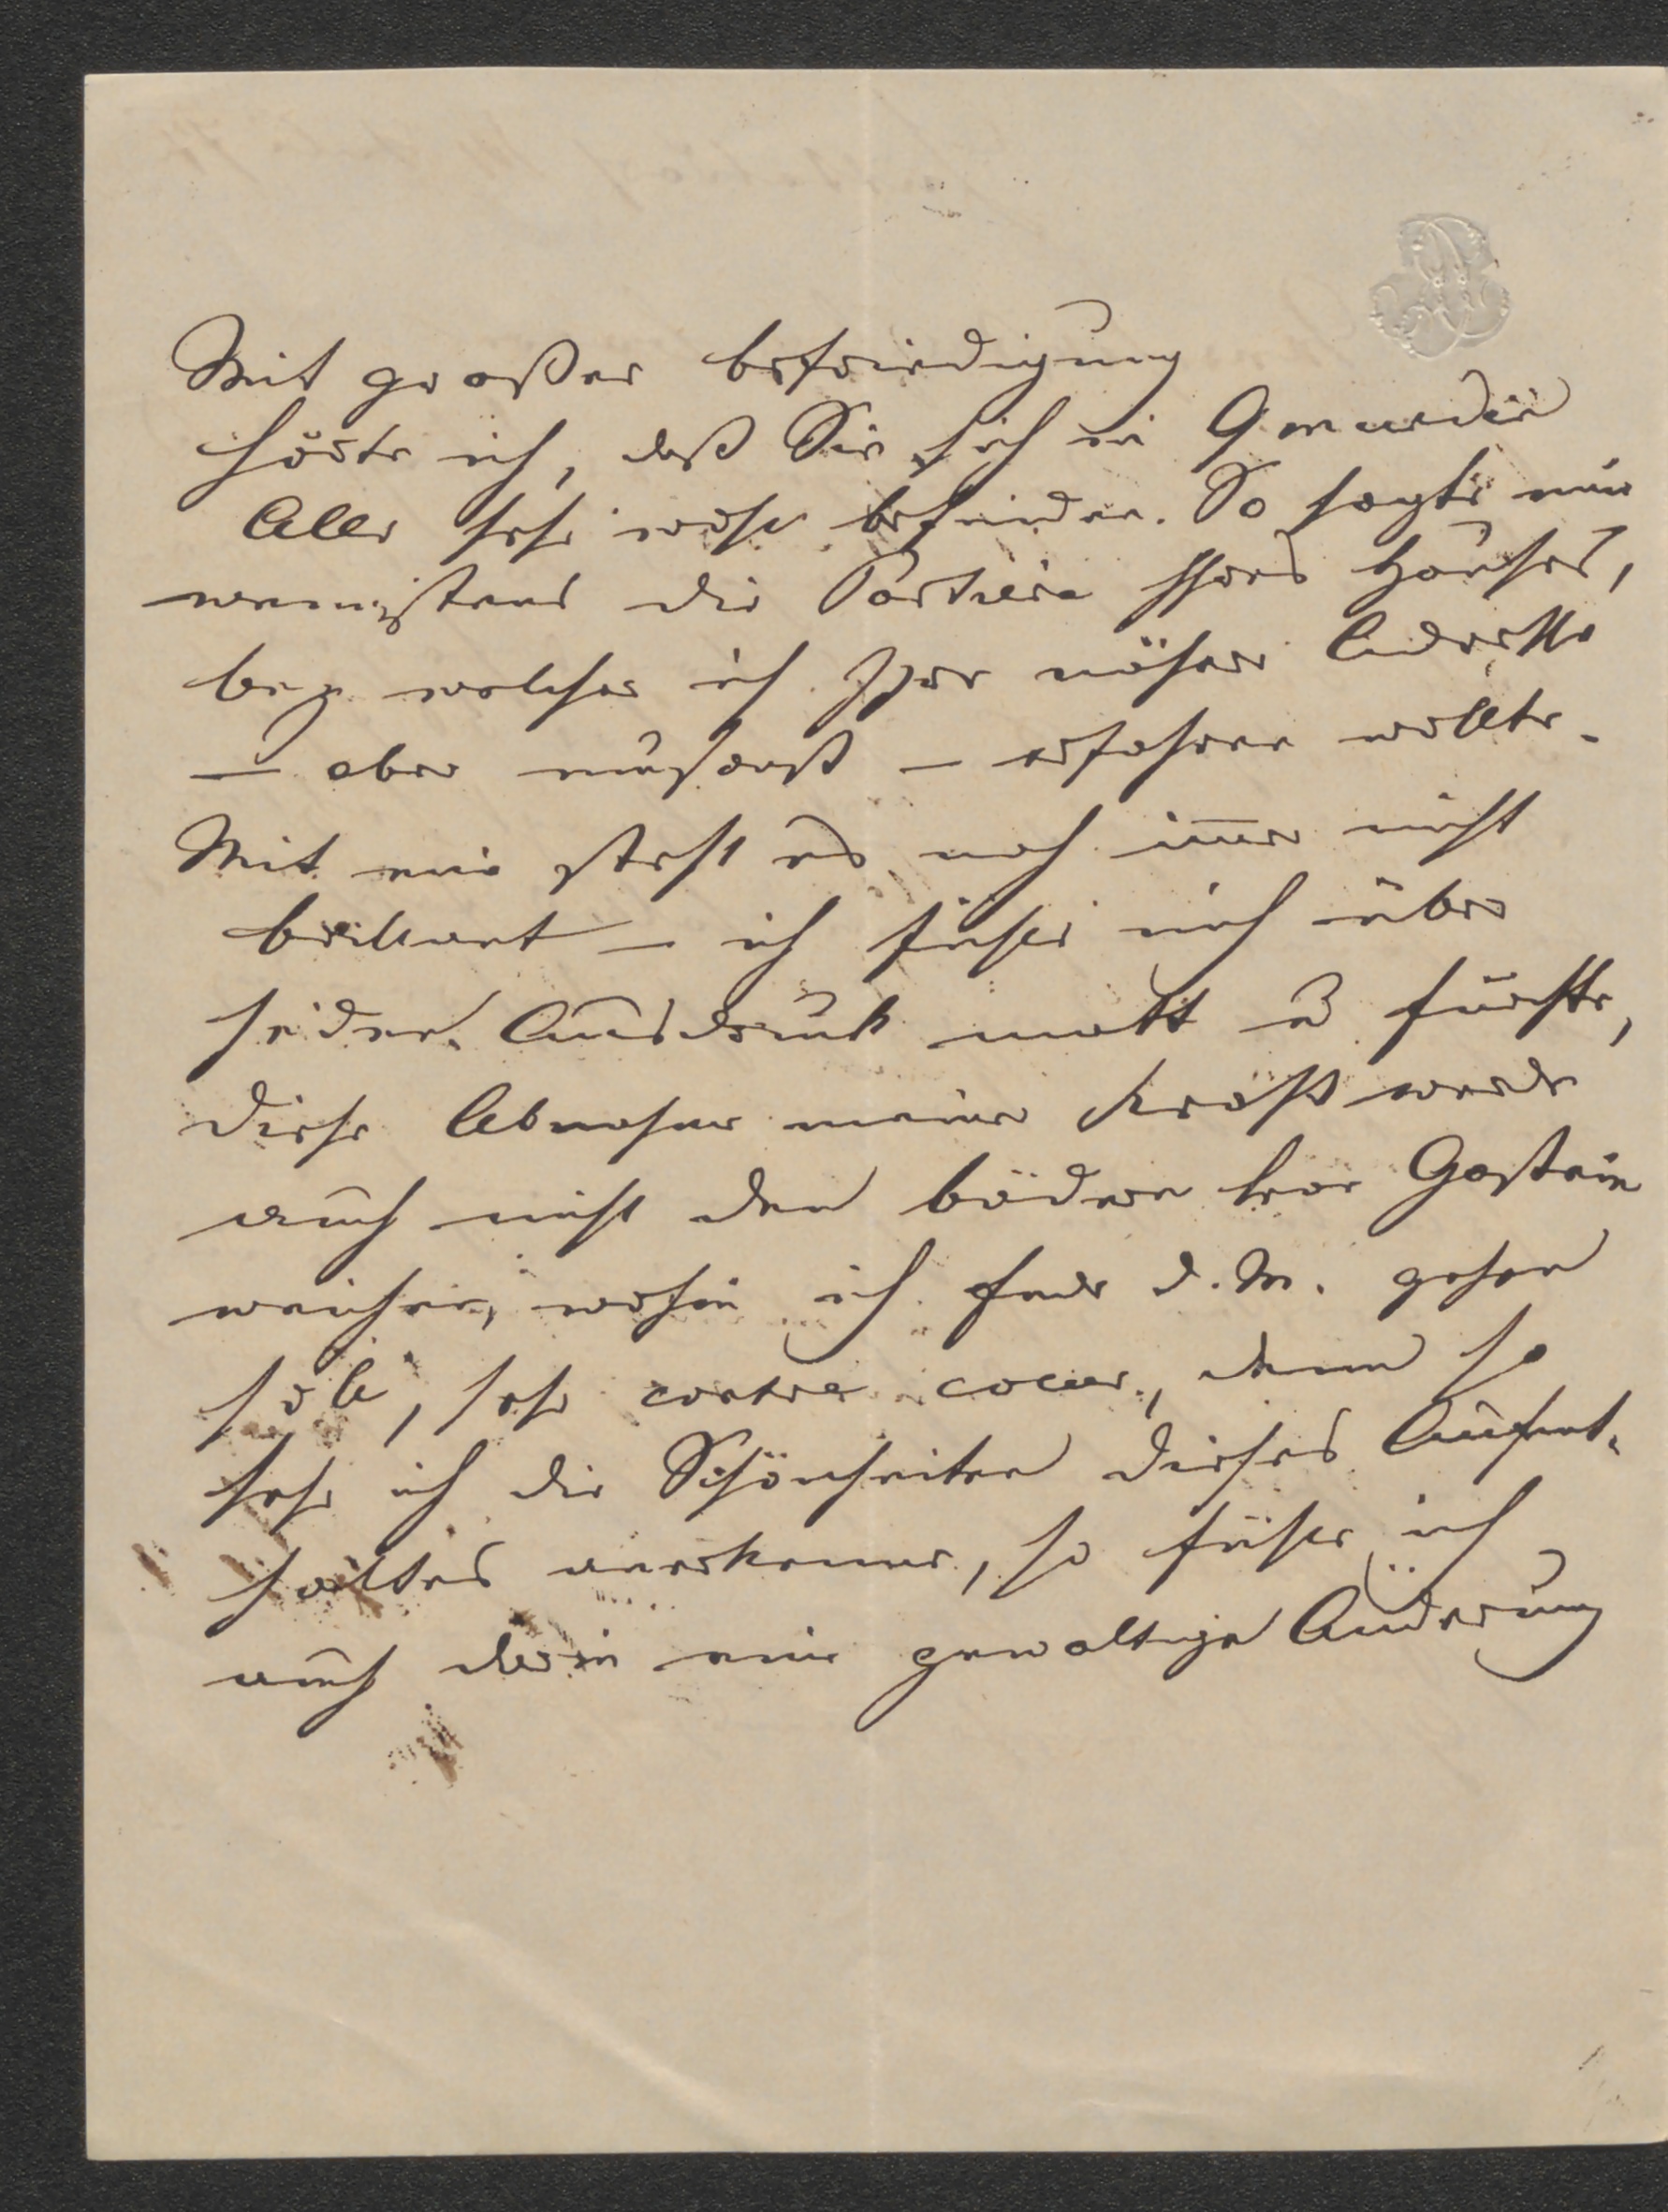 Mit großer Befriedigung
hörte ich, daß Sie sich in Gmunden
Alle sehr wohl befinden. So sagte mir
wenigstens die Portière Ihres Hauses,
bey welcher ich Ihre nähere Adresse
– aber umsonst – erfahren wollte.
Mit mir steht es noch im̅er nicht
brillant – ich fühle mich über
jeden Ausdruck matt u fürchte,
diese Abnahme meiner Kräfte werde
auch nicht den Bädern von Gastein
weichen, wohin ich Ende d. M. gehen
soll, sehr contre coeur, denn so
sehr ich die Schönheiten dieses Aufent-
haltes anerkenne, so fühle ich
auch darin eine gewaltige Änderung